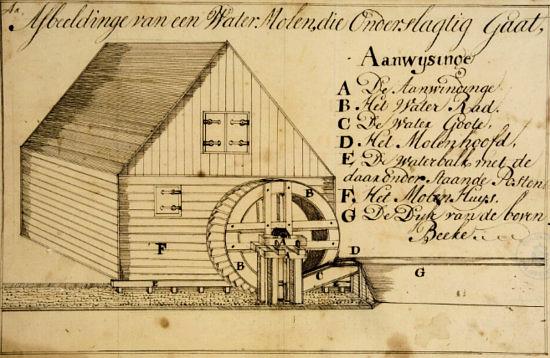 Afbeeldinge van een Water Molen, die Onderslagtig Gaat,
Aanwysinge
A De Aanwindinge
B. Het Water Rad.
C De Water Goote.
D. Het Molenhoofd.
E De Waterbalk met de
daar onder Staande Posten
F. Het Molen Huys.
G De Dijk van de boven
Beeke
B
F
B
D
C
G